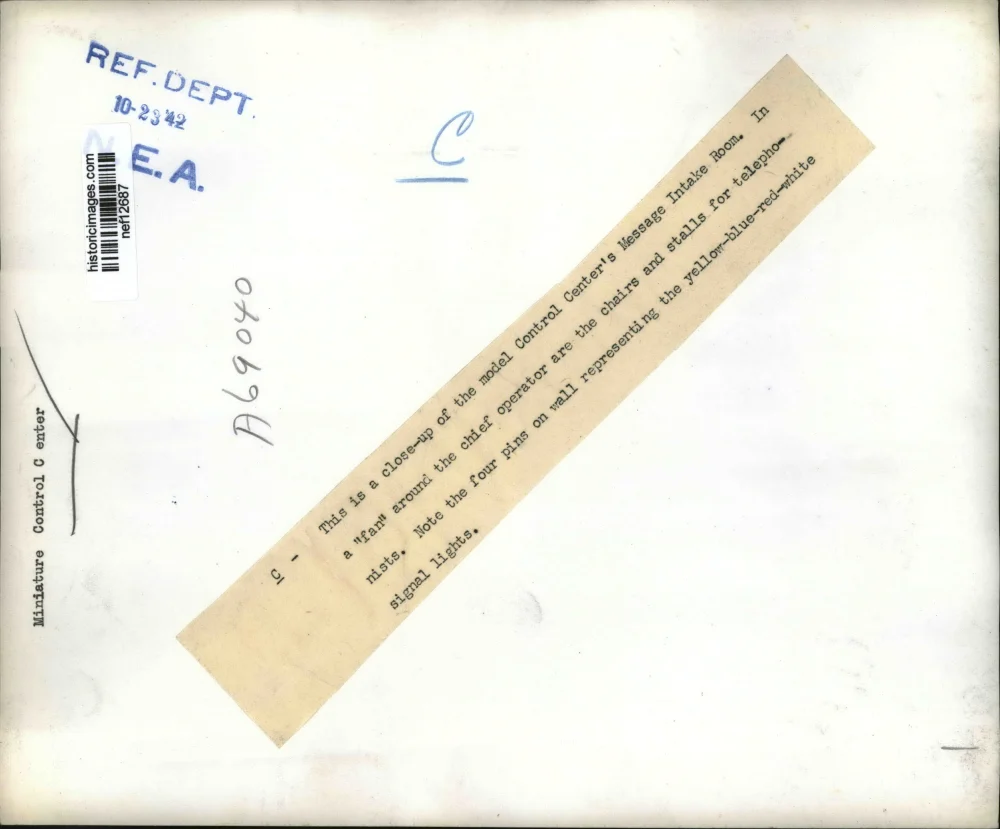 REF. DEPT.
10-23 '42
N.E.A.
historicimages.com
nef12687
C
A69040
Miniature Control C enter
C - This is a close-up of the model Control Center's Message Intake Room. In
a "fan" around the chief operator are the chairs and stalls for telepho-
nists. Note the four pins on wall representing the yellow-blue-red-white
signal lights.